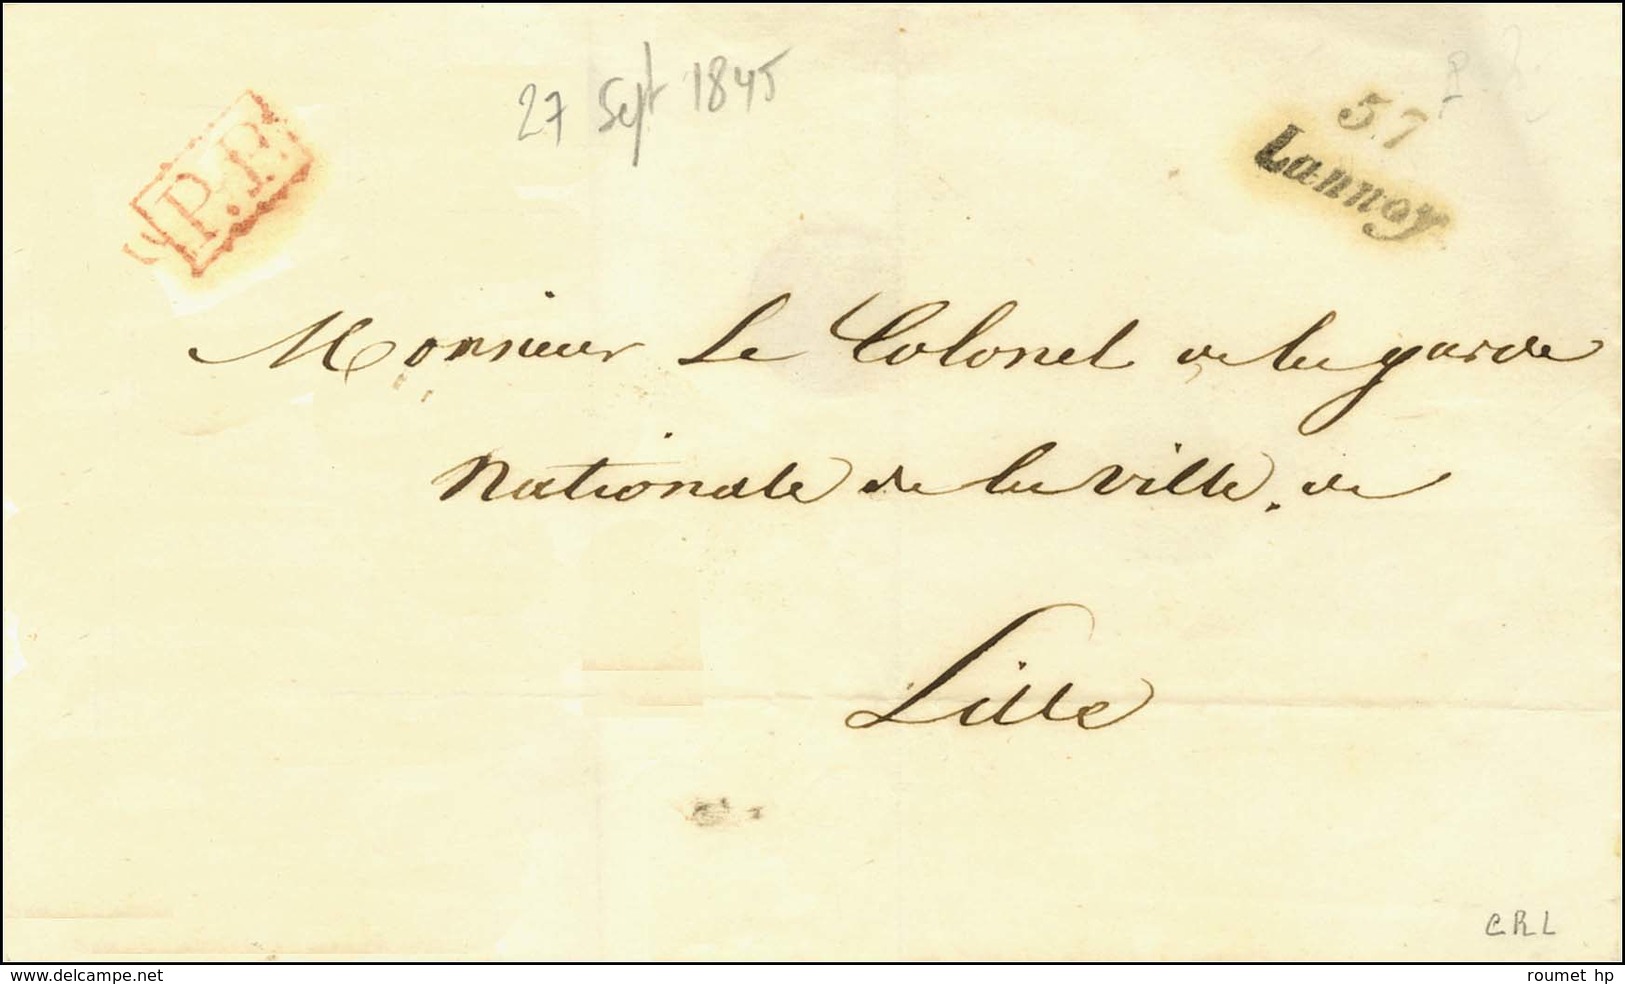 27 Sept 1845
P.P.
57
Lannoy
Monsieur Le Colonel de la garde
Nationale de la Ville. de
Lille
CRL
www.delcampe.net
roumet hp